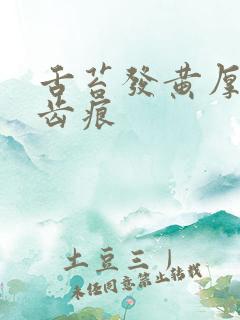 舌苔發黄厚
齿痕
土豆三丿
未经同意禁止转载